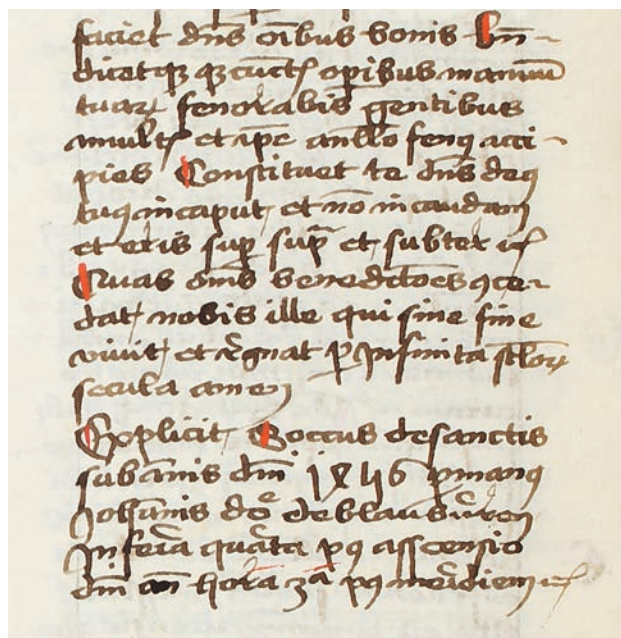 faciet dn̄s oı̄bus bonis Bn̄-
dicetqȝ qȝ cūct̄ op̲ibus manuū
tuaꝝ fenerabis gentibus
mult̄ et ip̄e a nllo fenꝰ acci-
pies Constituet te dn̄s deꝰ
tuꝰ in caput et nō in caudam
et eris semp̲ sup̄ et subter
Quas om̄s benedictōes ꝯce-
dat nobis ille qui sine fine
vivit et regnat ꝑ infinita sc̄loꝝ
secula amen
Explicit Soccus de sanctis
sub annis dm̄ 1446 ꝑ manꝰ
Joh̄anis de blaubūren
In feria quarta pꝰ asscensio
dm̄ hora 3a pꝰ meridiem